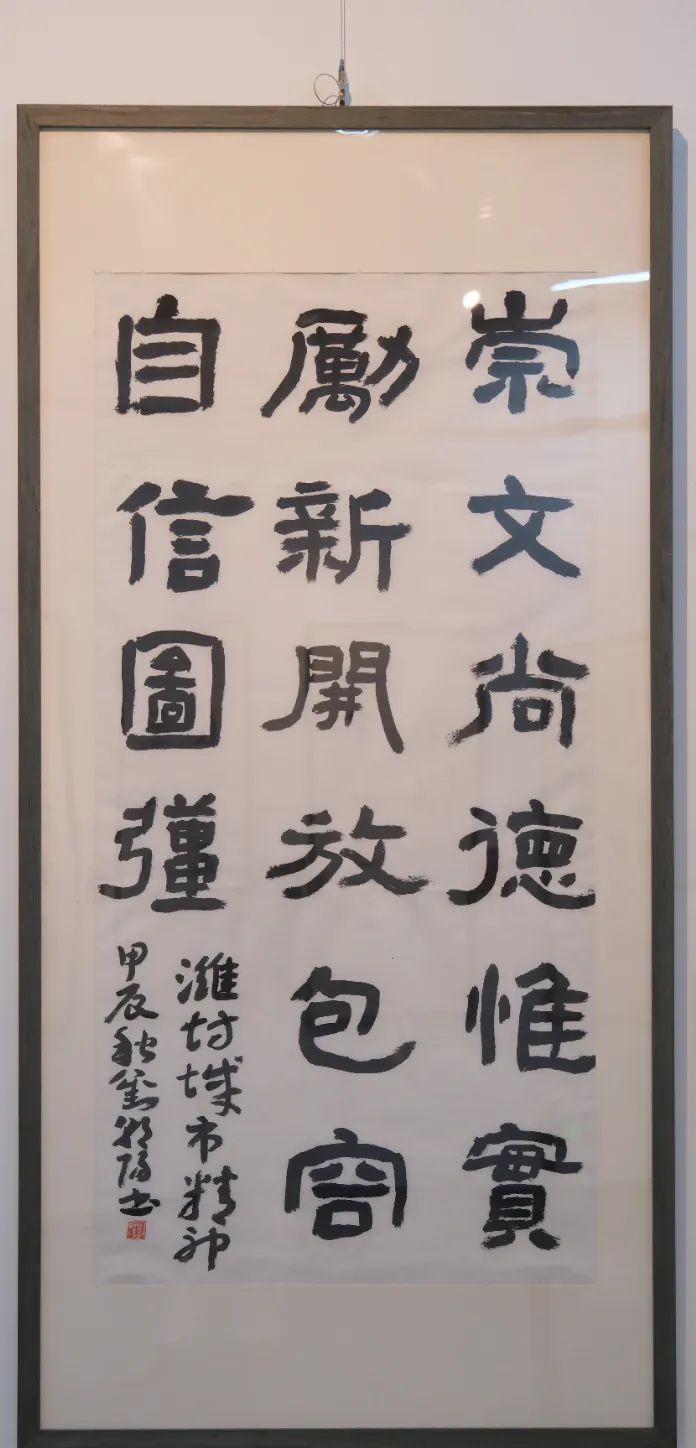 崇文尚德惟實
勵新開放包容
自信圖彊
濰坊城市精神
甲辰秋劉朝陽书